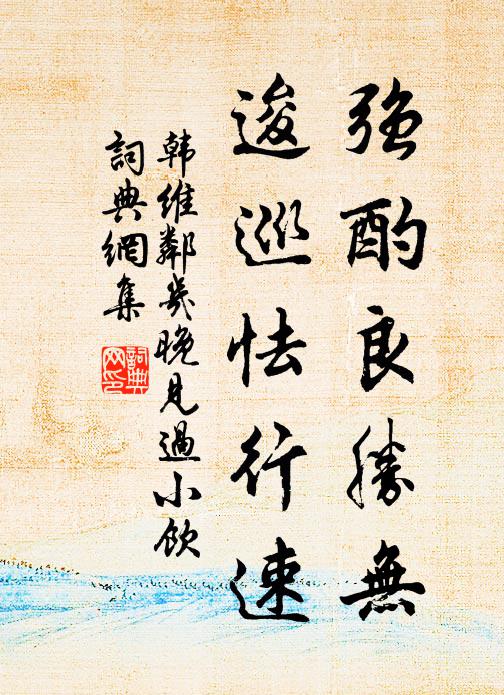 强酌良勝無
逡巡怯行速
韩維鄰幾晚見過小飲
詞典網集
詞典网印